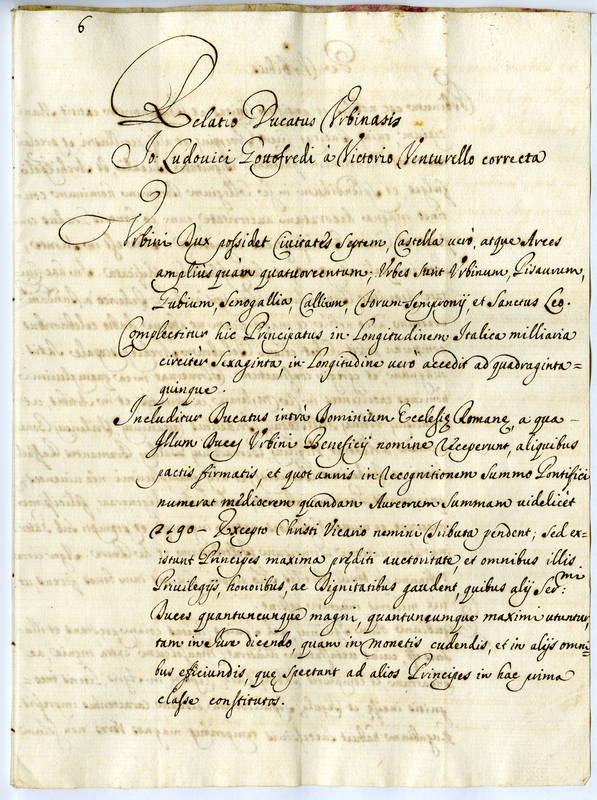 6
Relatio Ducatus Urbinatis
Jo: Ludovici Gotofredi à Victorio Venturello correcta
Urbini Dux possidet Civitates Septem, Castella verò, atque Arces
ampliùs quàm quatuorcentum; Urbes sunt Urbinum, Pisaurum,
Eubium, Senogallia, Callium, Forum-Sempronij, et Sanctus Leo.
Complectitur hic Principatus in Longitudinem Italica milliaria
circitèr Sexaginta, in Longitudine verò accedit ad quadraginta=
quinque.
Includitur Ducatus intrà Dominium Ecclesię Romanę, a qua
Illum Duces Urbini Beneficij nomine receperunt, aliquibus
pactis firmatis, et quot annis in recognitionem Summo Pontifici
numerat mediocrem quandam Aureorum Summam videlicèt
2490- Excepto Christi Vicario nemini Tributa pendent; Sed ex=
istunt Principes maxima pręditi auctoritate, et omnibus illis
Privilegijs, honoribus, ac Dignitatibus gaudent, quibus alij Ser:mi
Duces quantuncunque magni, quantuncumque maximi utuntur,
tam in Jure dicendo, quam in monetis cudendis, et in alijs omni=
bus efficiundis, quę spectant ad alios Principes in hac prima
classe constitutos.